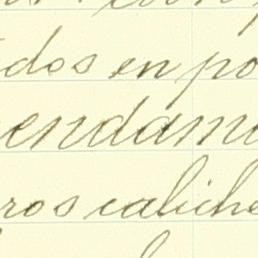 dos en po
endam
ros caliche